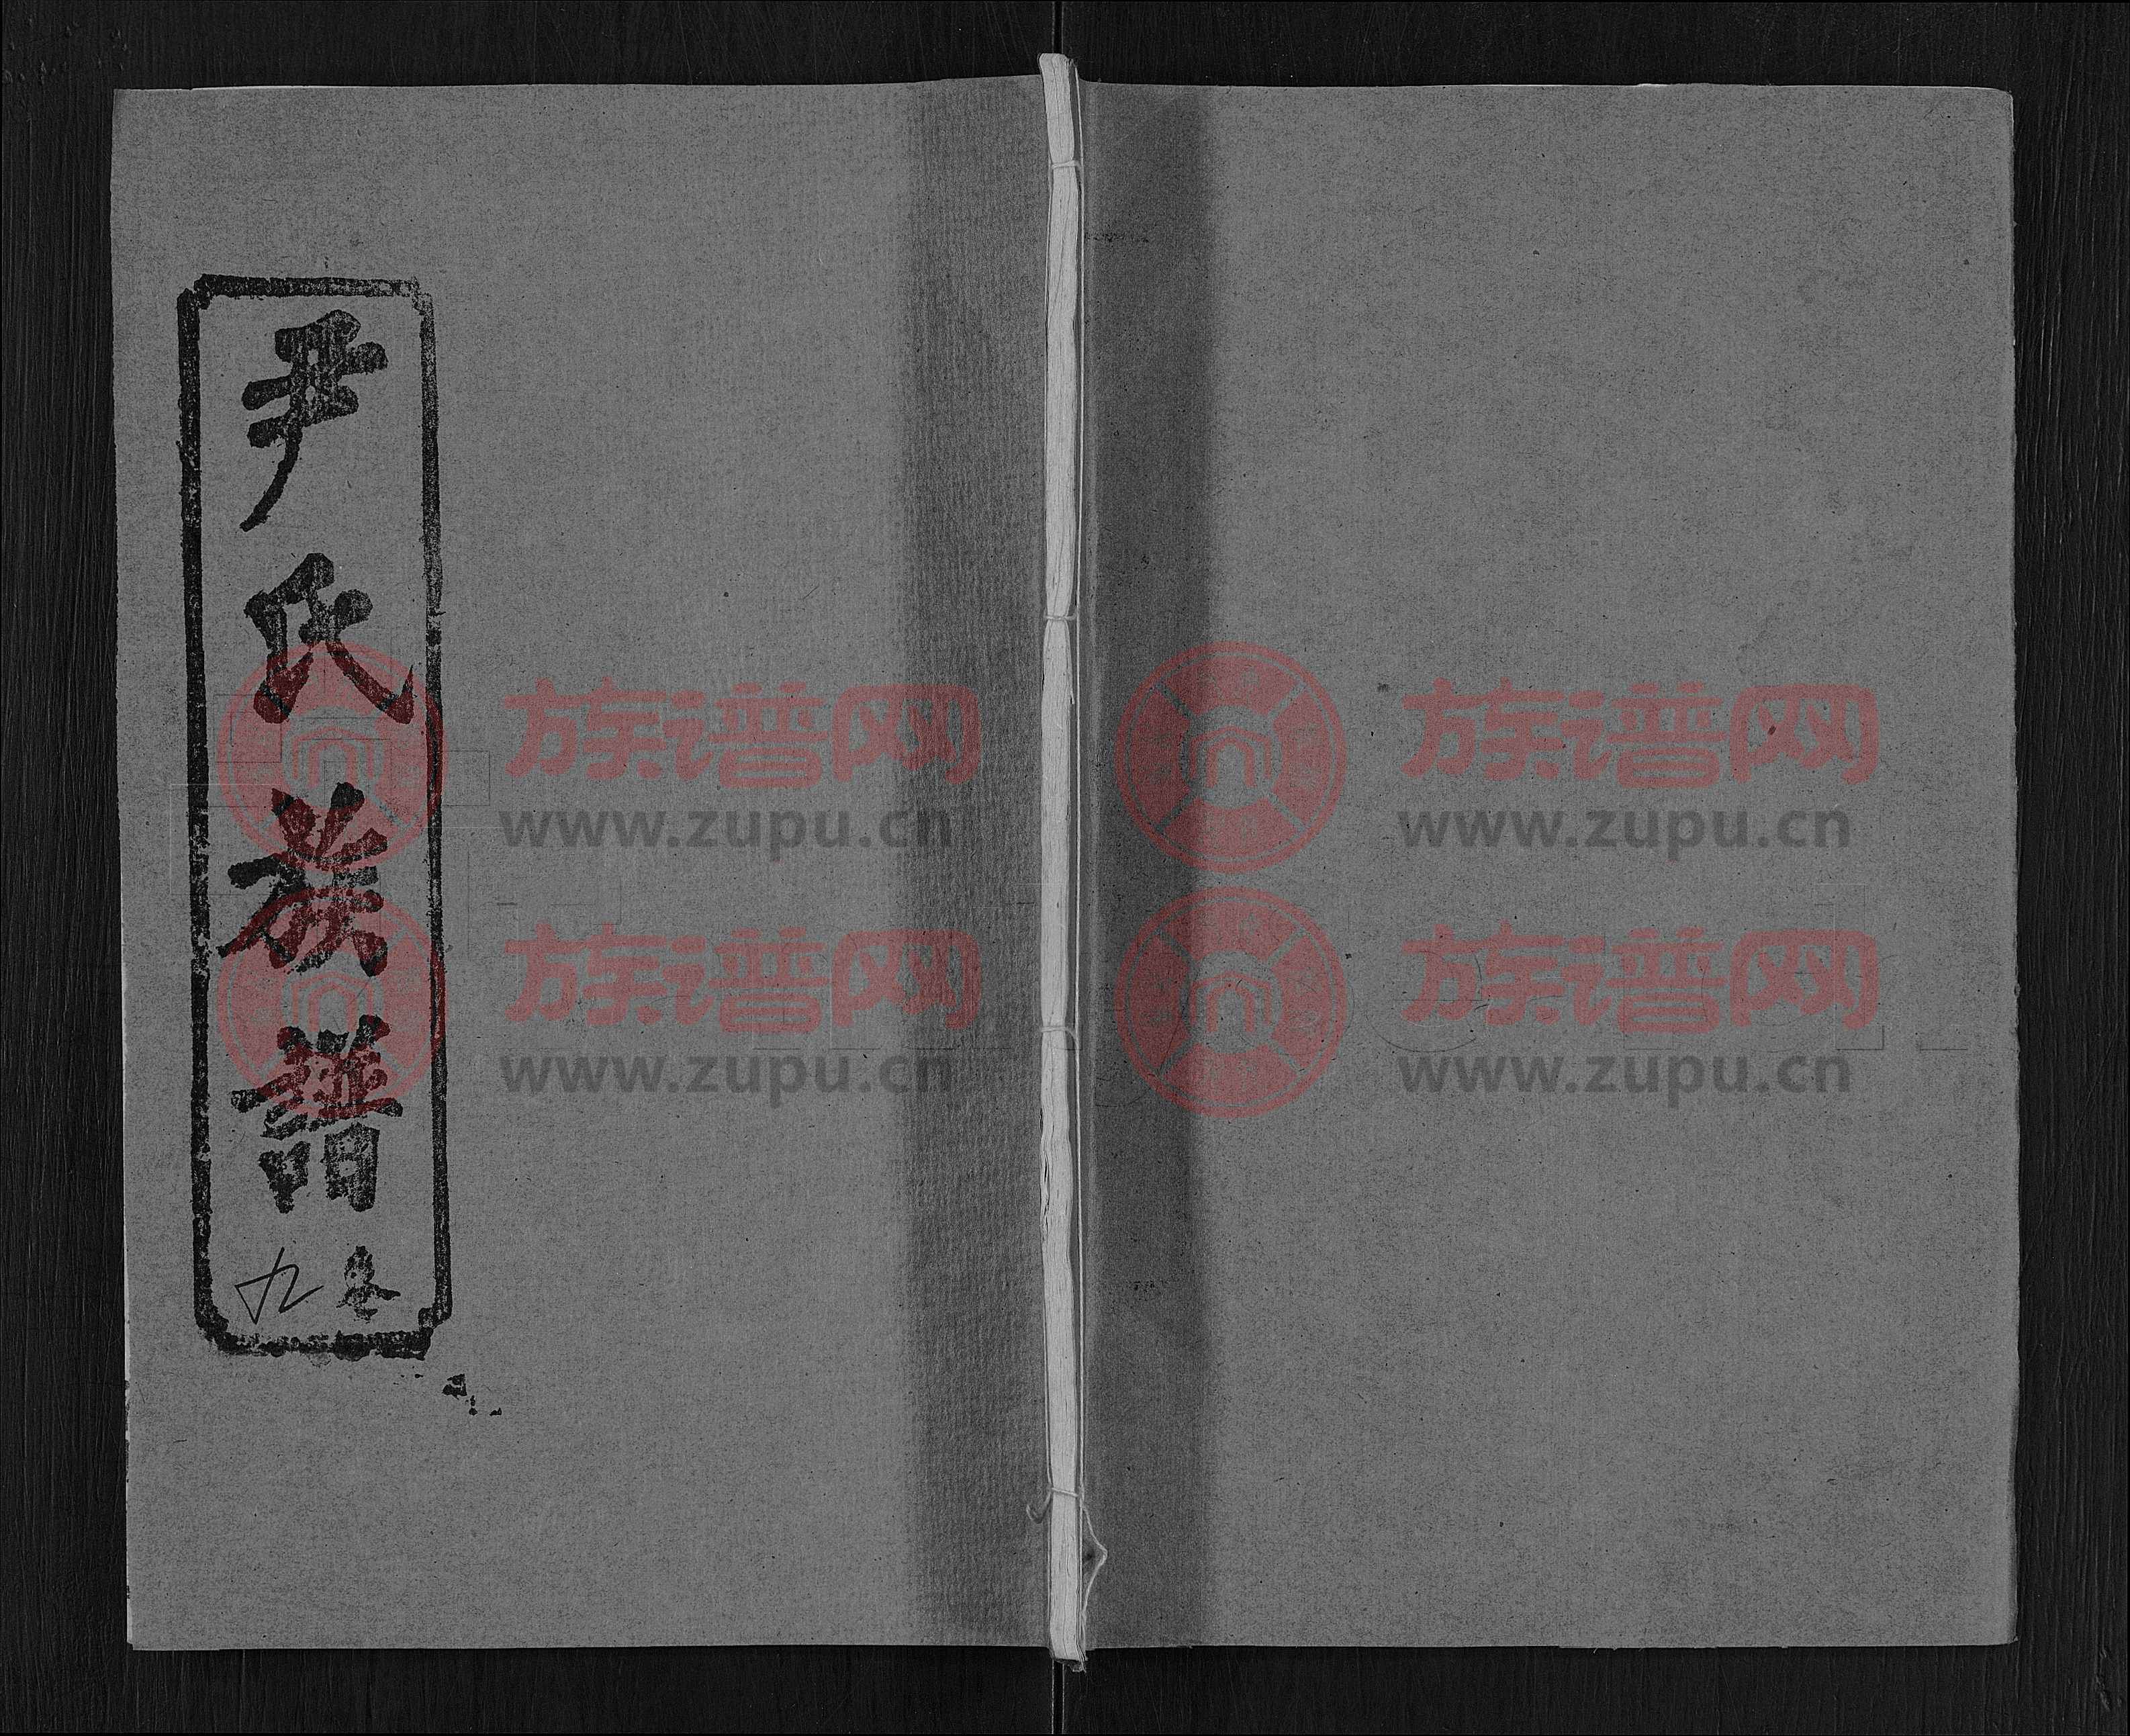 尹氏族譜
卷
九
族谱网
www.zupu.cn
族谱网
www.zupu.cn
族谱网
www.zupu.cn
族谱网
www.zupu.cn